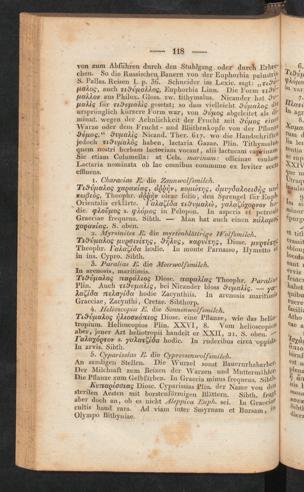 — 118 —
von zum Abführen durch den Stuhlgang oder durch Erbre-
chen. So die Russischen Bauern von der Euphorbia palustris
S. Pallas. Reisen I. p. 36. Schneider im Lexic. sagt: „τιθύ-
μαλος, auch τιθύμαλλος, Euphorbia Linn. Die Form τιθύ-
μαλλον am Philux. Gloss. sw. tithymalus. Nicander hat θυ-
μαλίς für τιθυμαλίς gesetzt; so dass vielleicht θύμαλος die
ursprünglich kürzere Form war, von θύμος abgeleitet als di-
minut. wegen der Aehnlichkeit der Frucht mit θύμος einer
Warze oder dem Frucht- und Blüthenkopfe von der Pflanze
θύμος.“ θυμαλίς Nicand. Ther. 617. wo die Handschriften
jedoch τιθυμαλίς haben, lactaria Gazae. Plin. Tithymalum
quem nostri herbam lactoriam vocant, alii lactucam caprinam.
Sie etiam Columella: at Cels. marinum: officinae esulam.
Lactaria nominata ob lac omnibus commune ex leviter secto
effluens.
1. Characias E. die Zaunwolfsmilch.
Τιθύμαλος χαρακίας, ἄῤῥην, κομήτης, ἀμυγδαλοειδής und
κωβιός, Theophr. ἄῤῥην
Orientalis erklärte. Γαλαζίδα τιθυμαλίς, γαλαζόχορτον
die. φλοῦμος s. φλόμος in Pelopon. In asperis et petrosis
Graeciae frequens. Sibth. — Man hat auch einen κάλαμος
χαρακίας. S. oben.
2. Myrsinites E. die myrtenblättrige Wolfsmilch.
Τιθύμαλος μυρσινίτης, θῆλυς, καρυίτης, Diosc. μυρτίτης
Theophr. Γαλαζίδα hodie. In monte Parnasso, Hymetto et
in ins. Cypro. Sibth.
3. Paralias E. die Meerwolfsmilch.
In arenosis, maritimis.
Τιθύμαλος παράλιος Diosc. παραλίας Theophr. Paralius
Plin. Auch τιθυμαλίς, bei Nicander bloss θυμαλίς. — γα-
λαζίδα πελαγίδα hodie Zacynthiis. In arenosis maritimis
Graeciae, Zacynthi, Cretae. Sibthorp.
4. Helioscopia E. die Sonnenwolfsmilch.
Τιθύμαλος ἡλιοσκόπιος Diosc. eine Pflanze, wie das helio-
tropium. Helioscopios Plin. XXVI, 8. Vom helioscopios
aber, jener Art heliotropii handelt er XXII, 21. S. oben. —
Γαλαχόρτον s. γαλατζίδα hodie. In ruderibus circa oppida.
In arvis. Sibth.
5. Cyparissias E. die Cypressenwolfsmilch.
An sandigen Stellen. Die Wurzel sonst Bauernrhabarber.
Der Milchsaft zum Beizen der Warzen und Muttermähler.
Die Pflanze zum Gelbfärben. In Graecia minus frequens. Sibth.
Κυπαρίσσιας Diosc. Cyparissias Plin. der Name von den
sterilen Aesten mit borstenförmigen Blättern. Sibth. fragt
aber doch an, ob es nicht Aleppica Euph. sei. In Graecia
cultis haud rara. Ad viam inter Smyrnam et Bursam, in
Olympo Bithyniae.